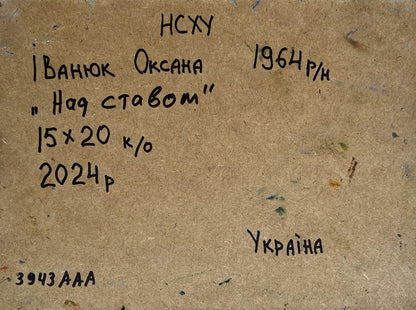 НСХУ
Іванюк Оксана 1964 р/н
„Над ставом"
15×20 к/о
2024р
Україна
3943ААА